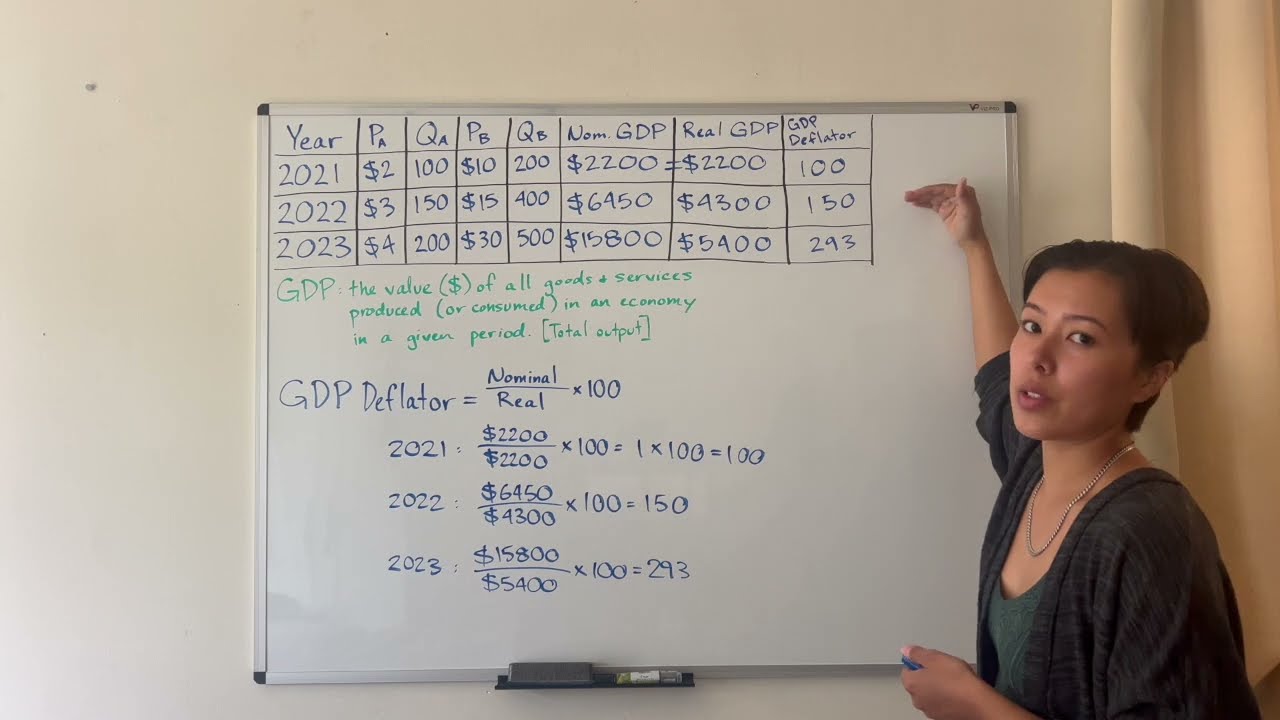 Year P_A Q_A P_B Q_B Nom. GDP Real GDP GDP Deflator
2021 $2 100 $10 200 $2200 = $2200 100
2022 $3 150 $15 400 $6450 $4300 150
2023 $4 200 $30 500 $15800 $5400 293
GDP: the value ($) of all goods + services
produced (or consumed) in an economy
in a given period. [Total output]
GDP Deflator = Nominal / Real × 100
2021: $2200 / $2200 × 100 = 1 × 100 = 100
2022: $6450 / $4300 × 100 = 150
2023: $15800 / $5400 × 100 = 293